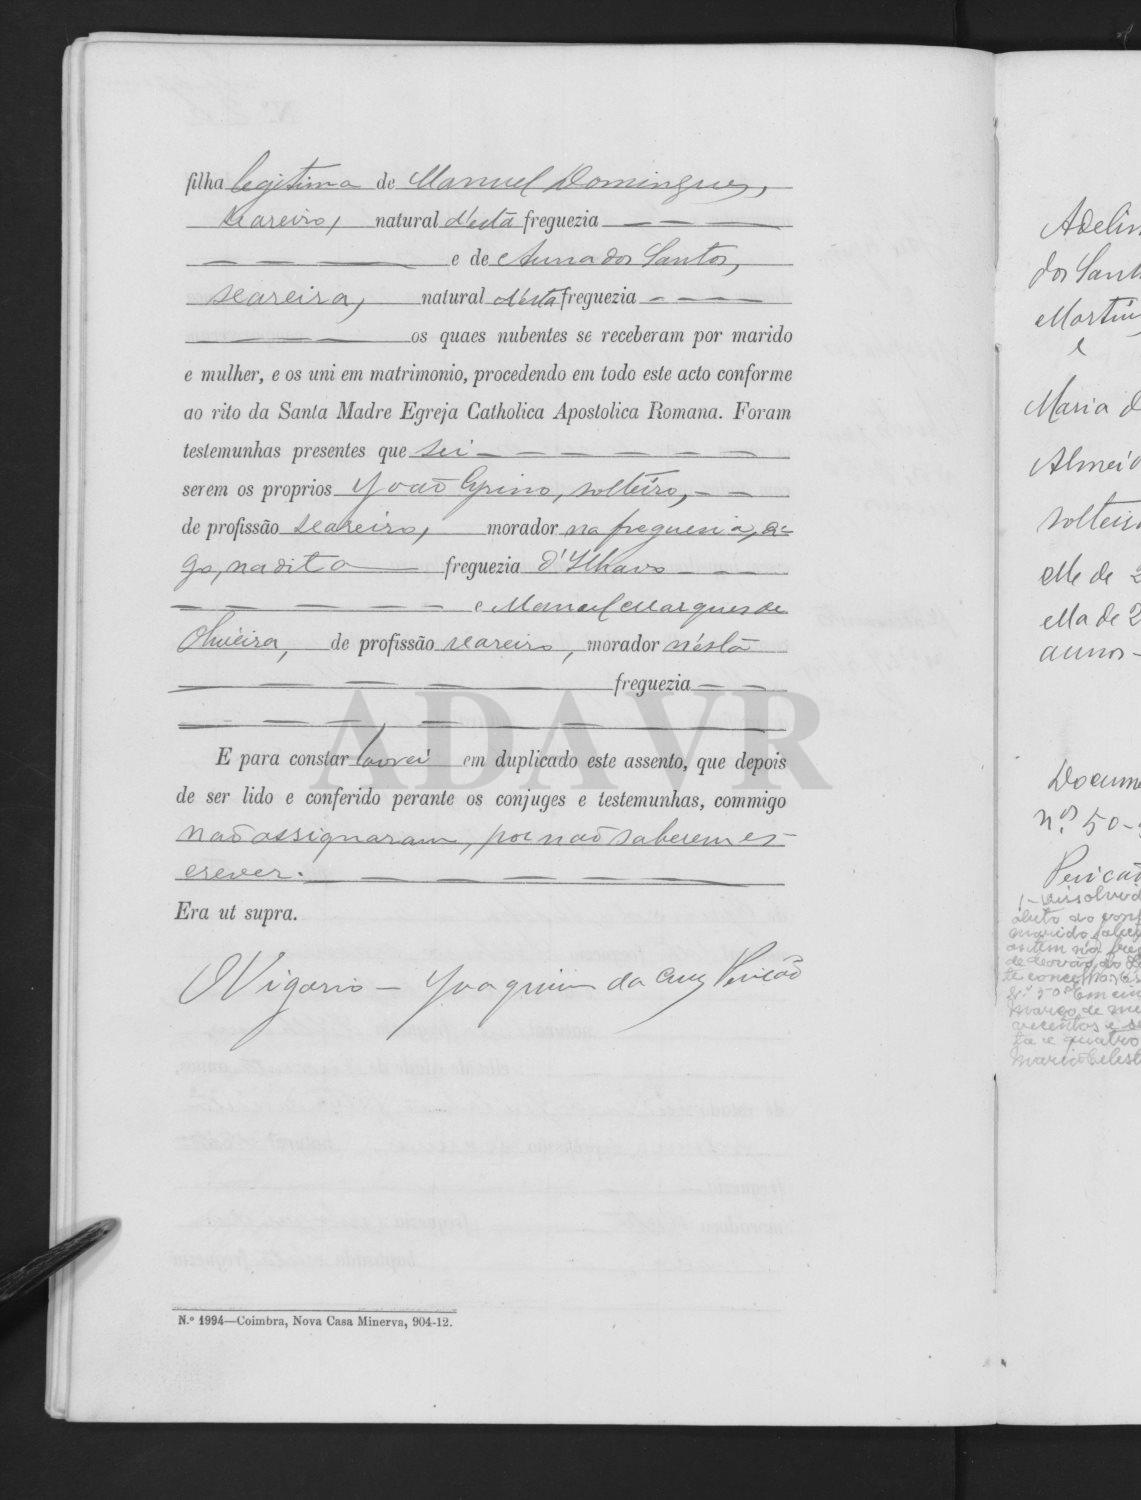 filha legitima de Manuel Domingues,
seareiro, natural d'esta freguezia
e de Anna dos Santos,
seareira, natural d'esta freguezia
os quaes nubentes se receberam por marido
e mulher, e os uni em matrimonio, procedendo em todo este acto conforme
ao rito da Santa Madre Egreja Catholica Apostolica Romana. Foram
testemunhas presentes que sei
serem os proprios João Cyrino, solteiro,
de profissão seareiro, morador na freguesia, di-
go, na dita freguezia d'Ilhavo
e Manuel Marques de
Oliveira, de profissão seareiro, morador n'esta
freguezia
E para constar lavrei em duplicado este assento, que depois
de ser lido e conferido perante os conjuges e testemunhas, commigo
não assignaram, por não saberem es-
crever.
Era ut supra.
O Vigario — Joaquim da Cruz Pericão
N.º 1994—Coimbra, Nova Casa Minerva, 904-12.
ADAVR
Adelin
dos Sant
Martin
e
Maria d
Almeid
solteir
elle de 2
ella de 2
annos
Docume
n.os 50-
Pericão
1 - Dissolvid
óbito do conj
marido falec
ontem na freg
te concelho
N.º 50
março de mi
vecentos e se
ta e quatro
Maria Celest